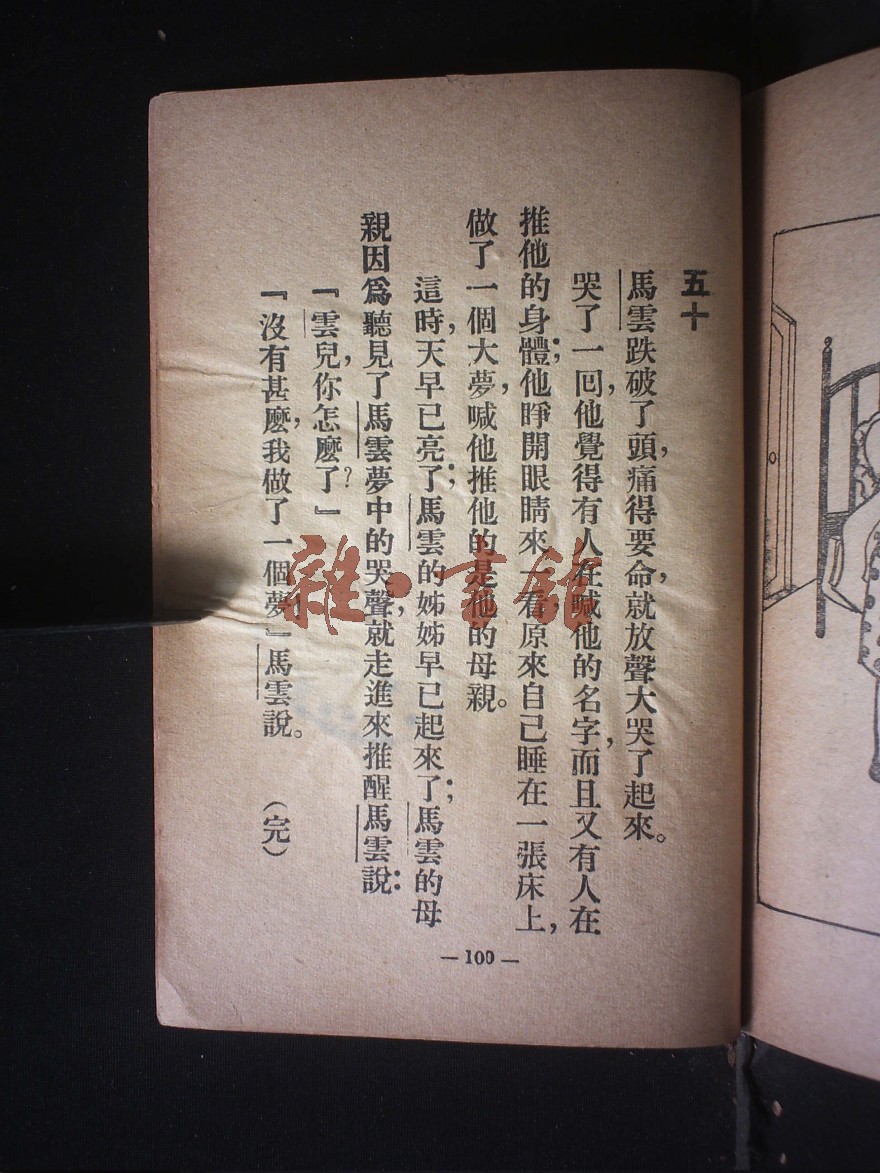 五十
馬雲跌破了頭，痛得要命，就放聲大哭了起來。
哭了一回，他覺得有人在喊他的名字，而且又有人在
推他的身體；他睜開眼睛來一看，原來自己睡在一張床上，
做了一個大夢，喊他推他的是他的母親。
這時，天早已亮了；馬雲的姊姊早已起來了；馬雲的母
親因爲聽見了馬雲夢中的哭聲，就走進來推醒馬雲說：
『雲兒，你怎麼了？』
『沒有甚麼，我做了一個夢！』馬雲說。
（完）
— 100 —
雜·書館